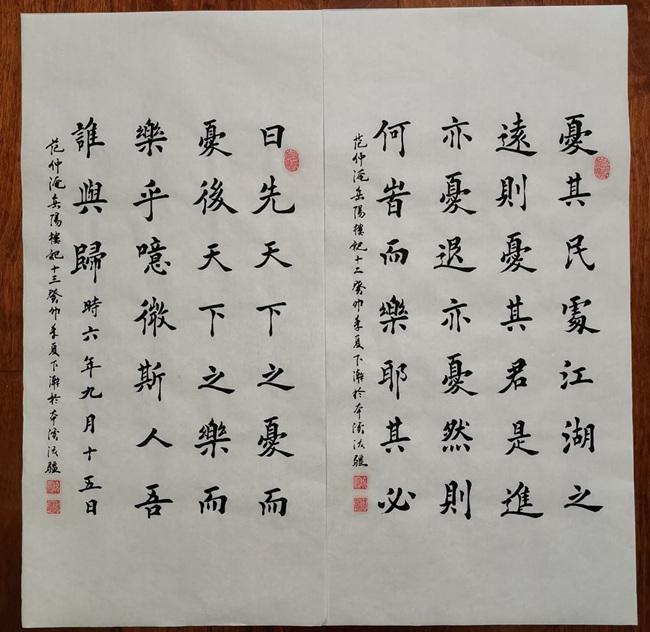 憂其民處江湖之
遠則憂其君是進
亦憂退亦憂然則
何旹而樂耶其必
范仲淹岳陽樓記十二癸卯季夏下澣於
曰先天下之憂而
憂後天下之樂而
樂乎噫微斯人吾
誰與歸時六年九月十五日
范仲淹岳陽樓記十三癸卯季夏下澣於